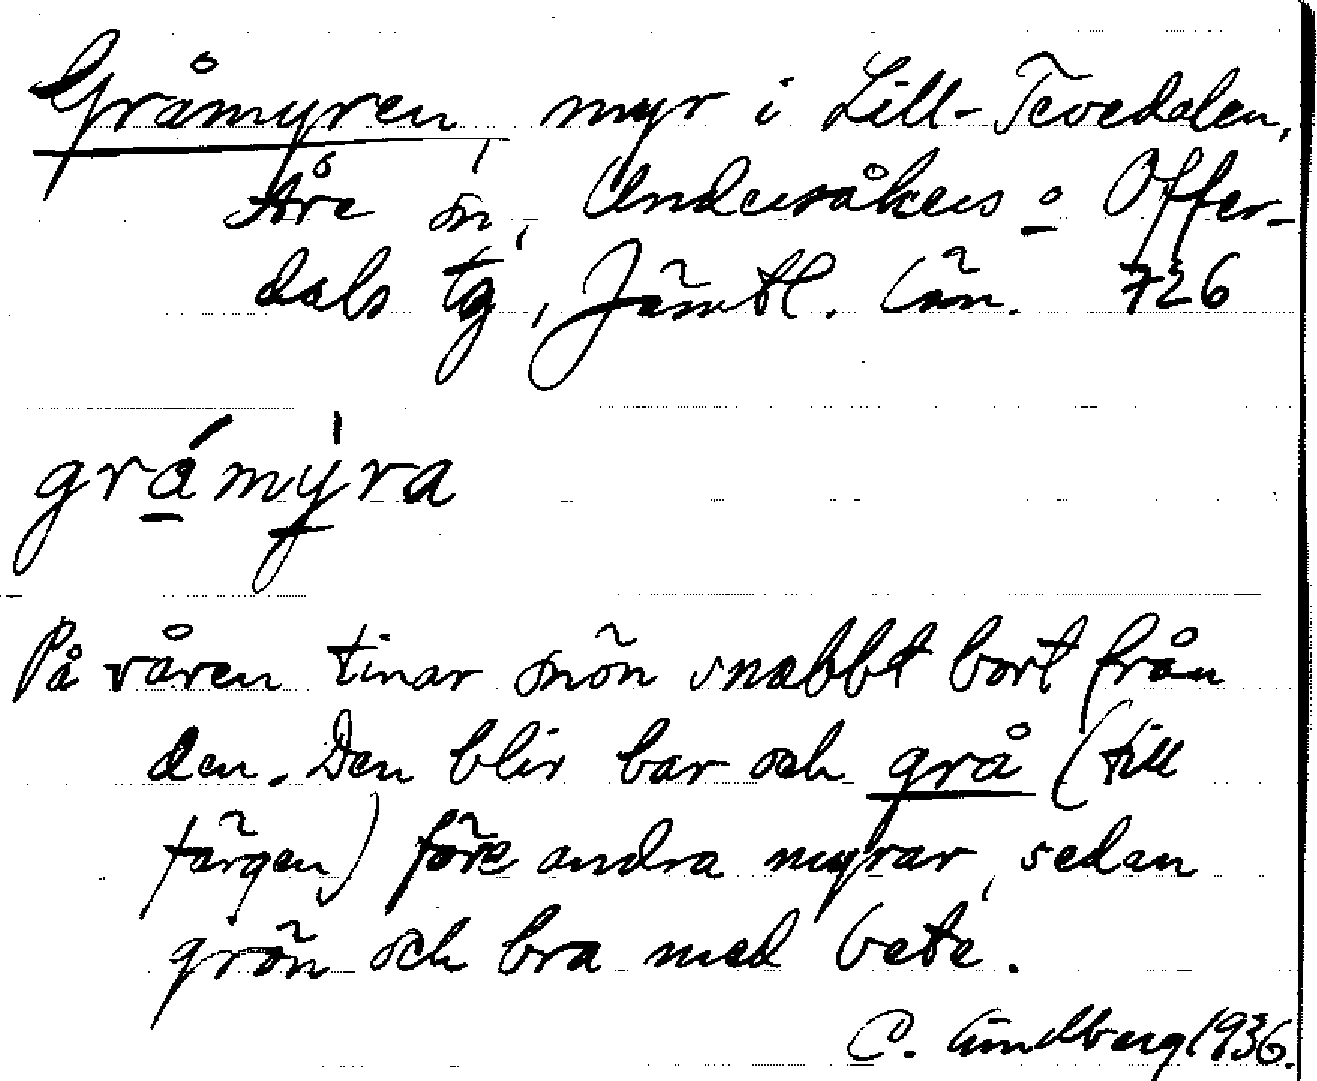 Gråmyren, myr i Lill-Tevedalen,
Åre sn, Undersåkers o Offer-
dals tg, Jämtl. län. 726
grámýra
På våren tinar snön snabbt bort från
den. Den blir bar och grå (till
färgen) före andra myrar, sedan
grön och bra med bete.
C. Lindberg 1936.